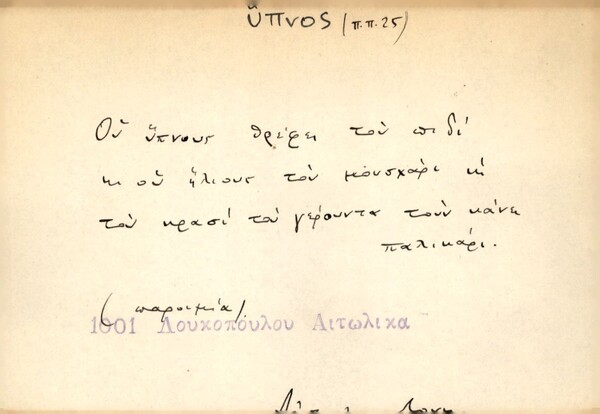 ὕπνος (π.π. 25)
Οὗ ὕπνους θρέφει τοὺ πιδί
κι οὗ ἥλιους τοὺ μουσχάρι κὴ
τοὺ κρασί τοὺ γέρουντα τοὺν κάνει
παλικάρι.
(παροιμία).
1001 Λουκοπούλου Αιτωλικα